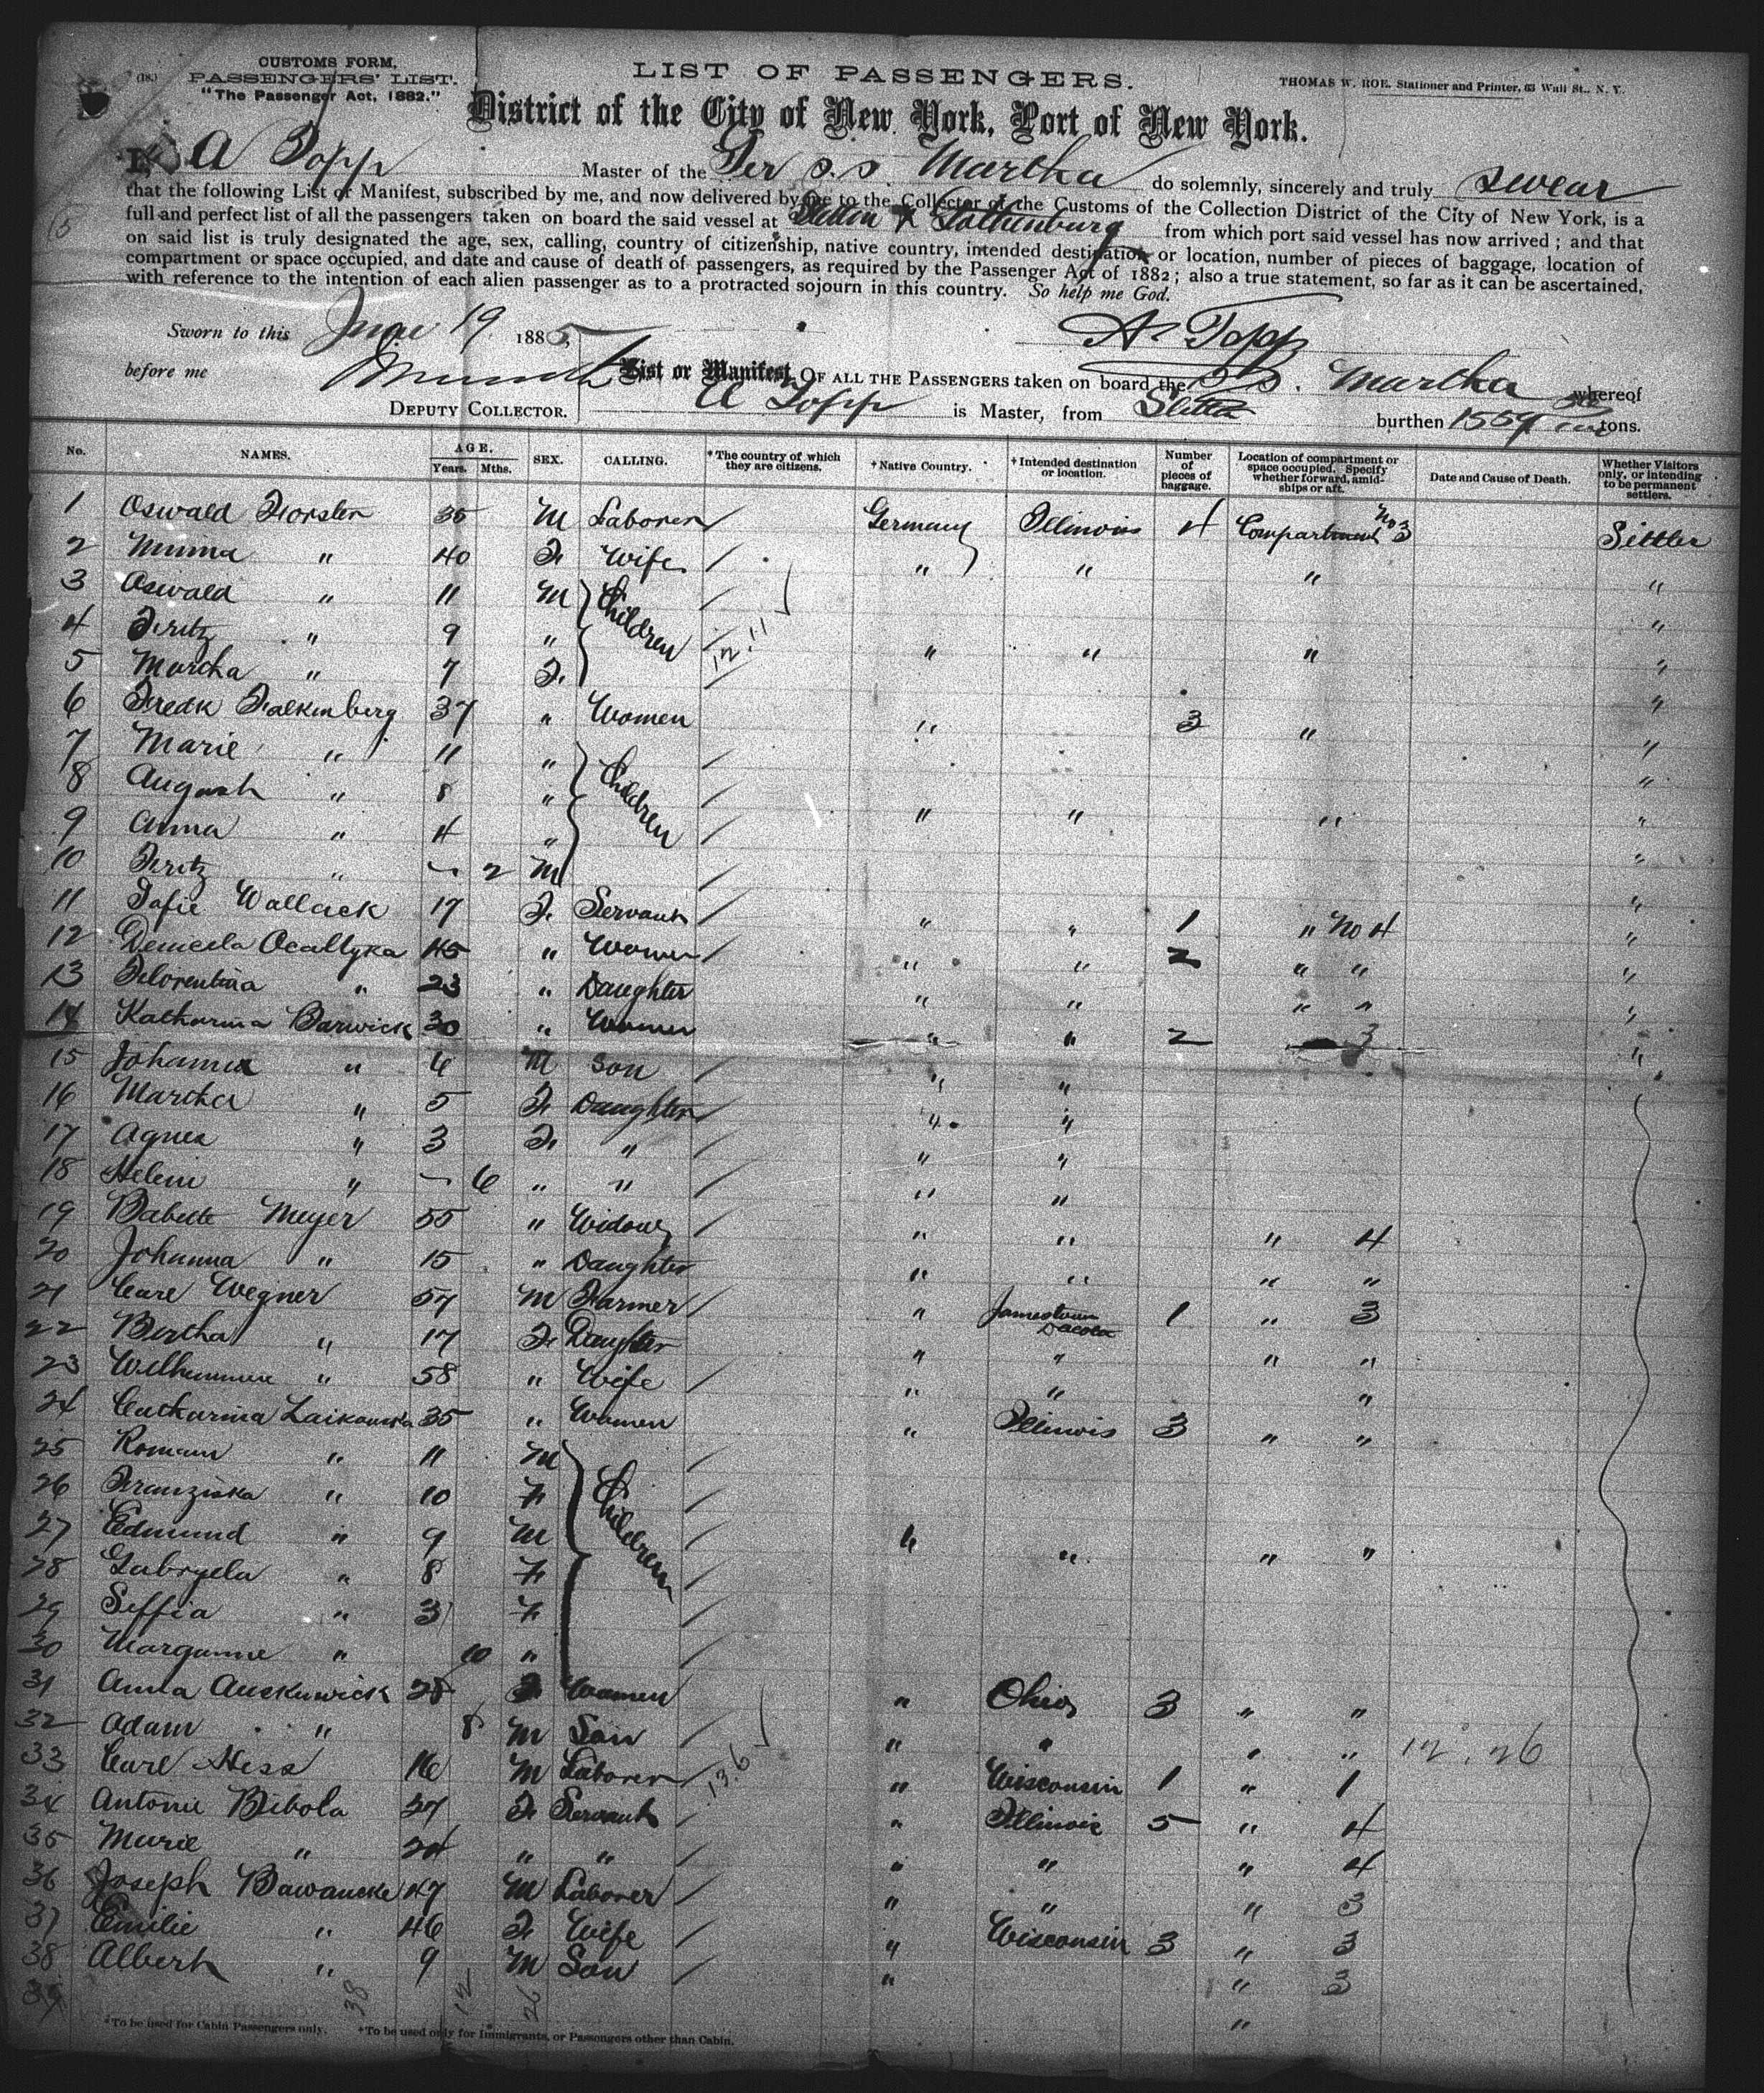 CUSTOMS FORM,
(18.) PASSENGERS' LIST.
"The Passenger Act, 1882."
LIST OF PASSENGERS.
THOMAS W. ROE, Stationer and Printer, 63 Wall St., N. Y.
District of the City of New York, Port of New York.
I, A Topp Master of the Ger S.S. Martha do solemnly, sincerely and truly swear
that the following List or Manifest, subscribed by me, and now delivered by me to the Collector of the Customs of the Collection District of the City of New York, is a
full and perfect list of all the passengers taken on board the said vessel at Stettin & Gothenburg from which port said vessel has now arrived ; and that
on said list is truly designated the age, sex, calling, country of citizenship, native country, intended destination or location, number of pieces of baggage, location of
compartment or space occupied, and date and cause of death of passengers, as required by the Passenger Act of 1882 ; also a true statement, so far as it can be ascertained,
with reference to the intention of each alien passenger as to a protracted sojourn in this country. So help me God.
Sworn to this June 19 1885, A Topp
before me
List or Manifest OF ALL THE PASSENGERS taken on board the SS. Martha whereof
DEPUTY COLLECTOR. A Topp is Master, from Stettin burthen 1559 tons.
No. NAMES. AGE. Years. Mths. SEX. CALLING. *The country of which they are citizens. †Native Country. †Intended destination or location. Number of pieces of baggage. Location of compartment or space occupied. Specify whether forward, amidships or aft. Date and Cause of Death. Whether Visitors only, or intending to be permanent settlers.
1 Oswald Forster 35 M Laborer Germany Illinois 4 Compartment No 3 Settler
2 Minna " 40 F. Wife " " " "
3 Oswald " 11 M Children "
4 Fritz " 9 " " " " "
5 Martha " 7 F. "
6 Fredk Falkenberg 37 " Women " 3 " "
7 Marie " 11 " Children "
8 August " 8 " "
9 Anna " 4 " " " " "
10 Fritz " - 2 M "
11 Sofie Wallack 17 F. Servant " " 1 " No 4 "
12 Ocallyka 45 " Women " " 2 " " "
13 Florentina " 23 " Daughter " " " " "
14 Katharina Barwick 30 " Women " " 2 3 "
15 Johannes " 6 M Son " " "
16 Martha " 5 F. Daughter " "
17 Agnes " 3 F. " " "
18 Heleni " - 6 " " " "
19 Babette Meyer 55 " Widow " " " 4
20 Johanna " 15 " Daughter " " " "
21 Carl Wegner 57 M Farmer " Jamestown Dacota 1 " 3
22 Bertha " 17 F. Daughter " " " "
23 Wilhemmine " 58 " Wife " " "
24 Catharina Laikowska 35 " Women " Illinois 3 " "
25 Roman " 11 M Children
26 Franziska " 10 F
27 Edmund " 9 M " " " "
28 Gabryela " 8 F
29 Seffia " 3 F
30 Margunne " 10 "
31 Anna Auskuwick 28 F Women " Ohio 3 " "
32 Adam " 8 M Son " " " " 12.26
33 Carl Hess 16 M Laborer " Wisconsin 1 " 1
34 Antonie Bibola 27 F. Servant " Illinois 5 " 4
35 Marie " 24 " " " " " 4
36 Joseph Bawancke 47 M Laborer " " " 3
37 Emilie " 46 F. Wife " Wisconsin 3 " 3
38 Albert " 9 M Son " " 3
39 38 12 26 "
*To be used for Cabin Passengers only. †To be used only for Immigrants, or Passengers other than Cabin.